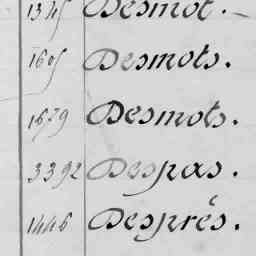 1345 Desmot.
1605 Desmots.
1679 Desmots.
3392 Despas.
1446 Després.